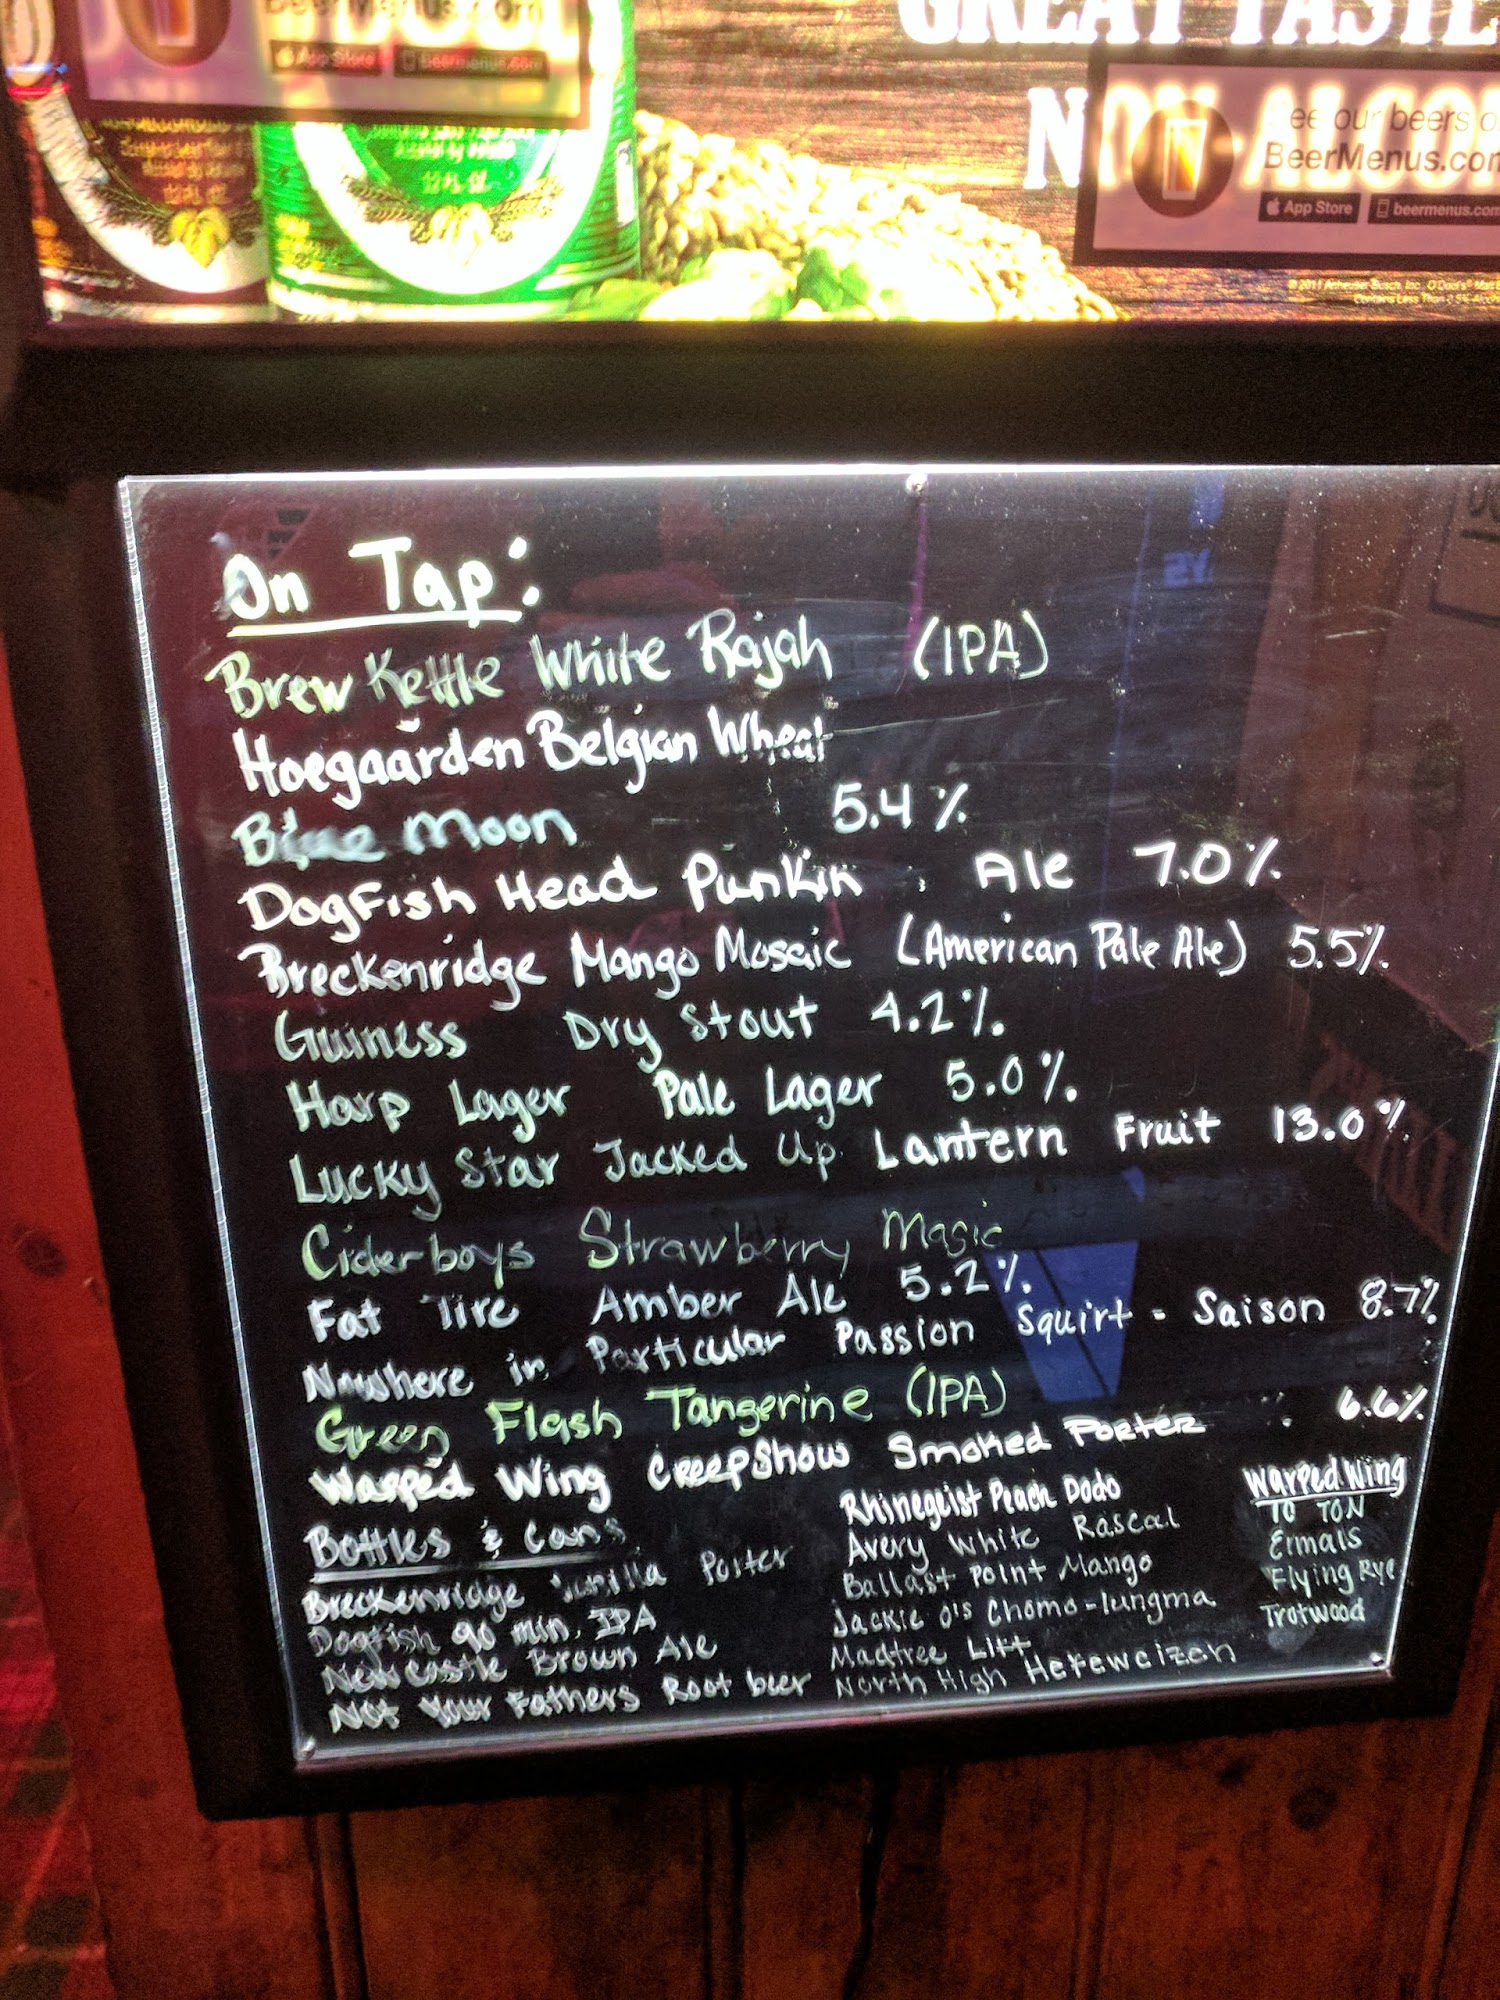 BeerMenus.com
App Store
beermenus.com
12 FL. OZ.
GREAT TASTE
NON-ALCO
See our beers o
BeerMenus.com
App Store
beermenus.com
On Tap:
Brew Kettle White Rajah (IPA)
Hoegaarden Belgian Wheat
Blue Moon 5.4%
Dogfish Head Punkin Ale 7.0%
Breckenridge Mango Mosaic (American Pale Ale) 5.5%
Guiness Dry Stout 4.2%
Harp Lager Pale Lager 5.0%
Lucky Star Jacked Up Lantern Fruit 13.0%
Ciderboys Strawberry Magic
Fat Tire Amber Ale 5.2%
Nowhere in Particular Passion Squirt - Saison 8.7%
Green Flash Tangerine (IPA)
Warped Wing Creepshow Smoked Porter 6.6%
Bottles & Cans
Breckenridge Vanilla Porter
Dogfish 90 min. IPA
Newcastle Brown Ale
Not Your Fathers Root beer
Rhinegeist Peach Dodo
Avery White Rascal
Ballast Point Mango
Jackie O's Chomo-lungma
Madtree Lift
North High Hefeweizen
Warped Wing
10 TON
Ermals
Flying Rye
Trotwood